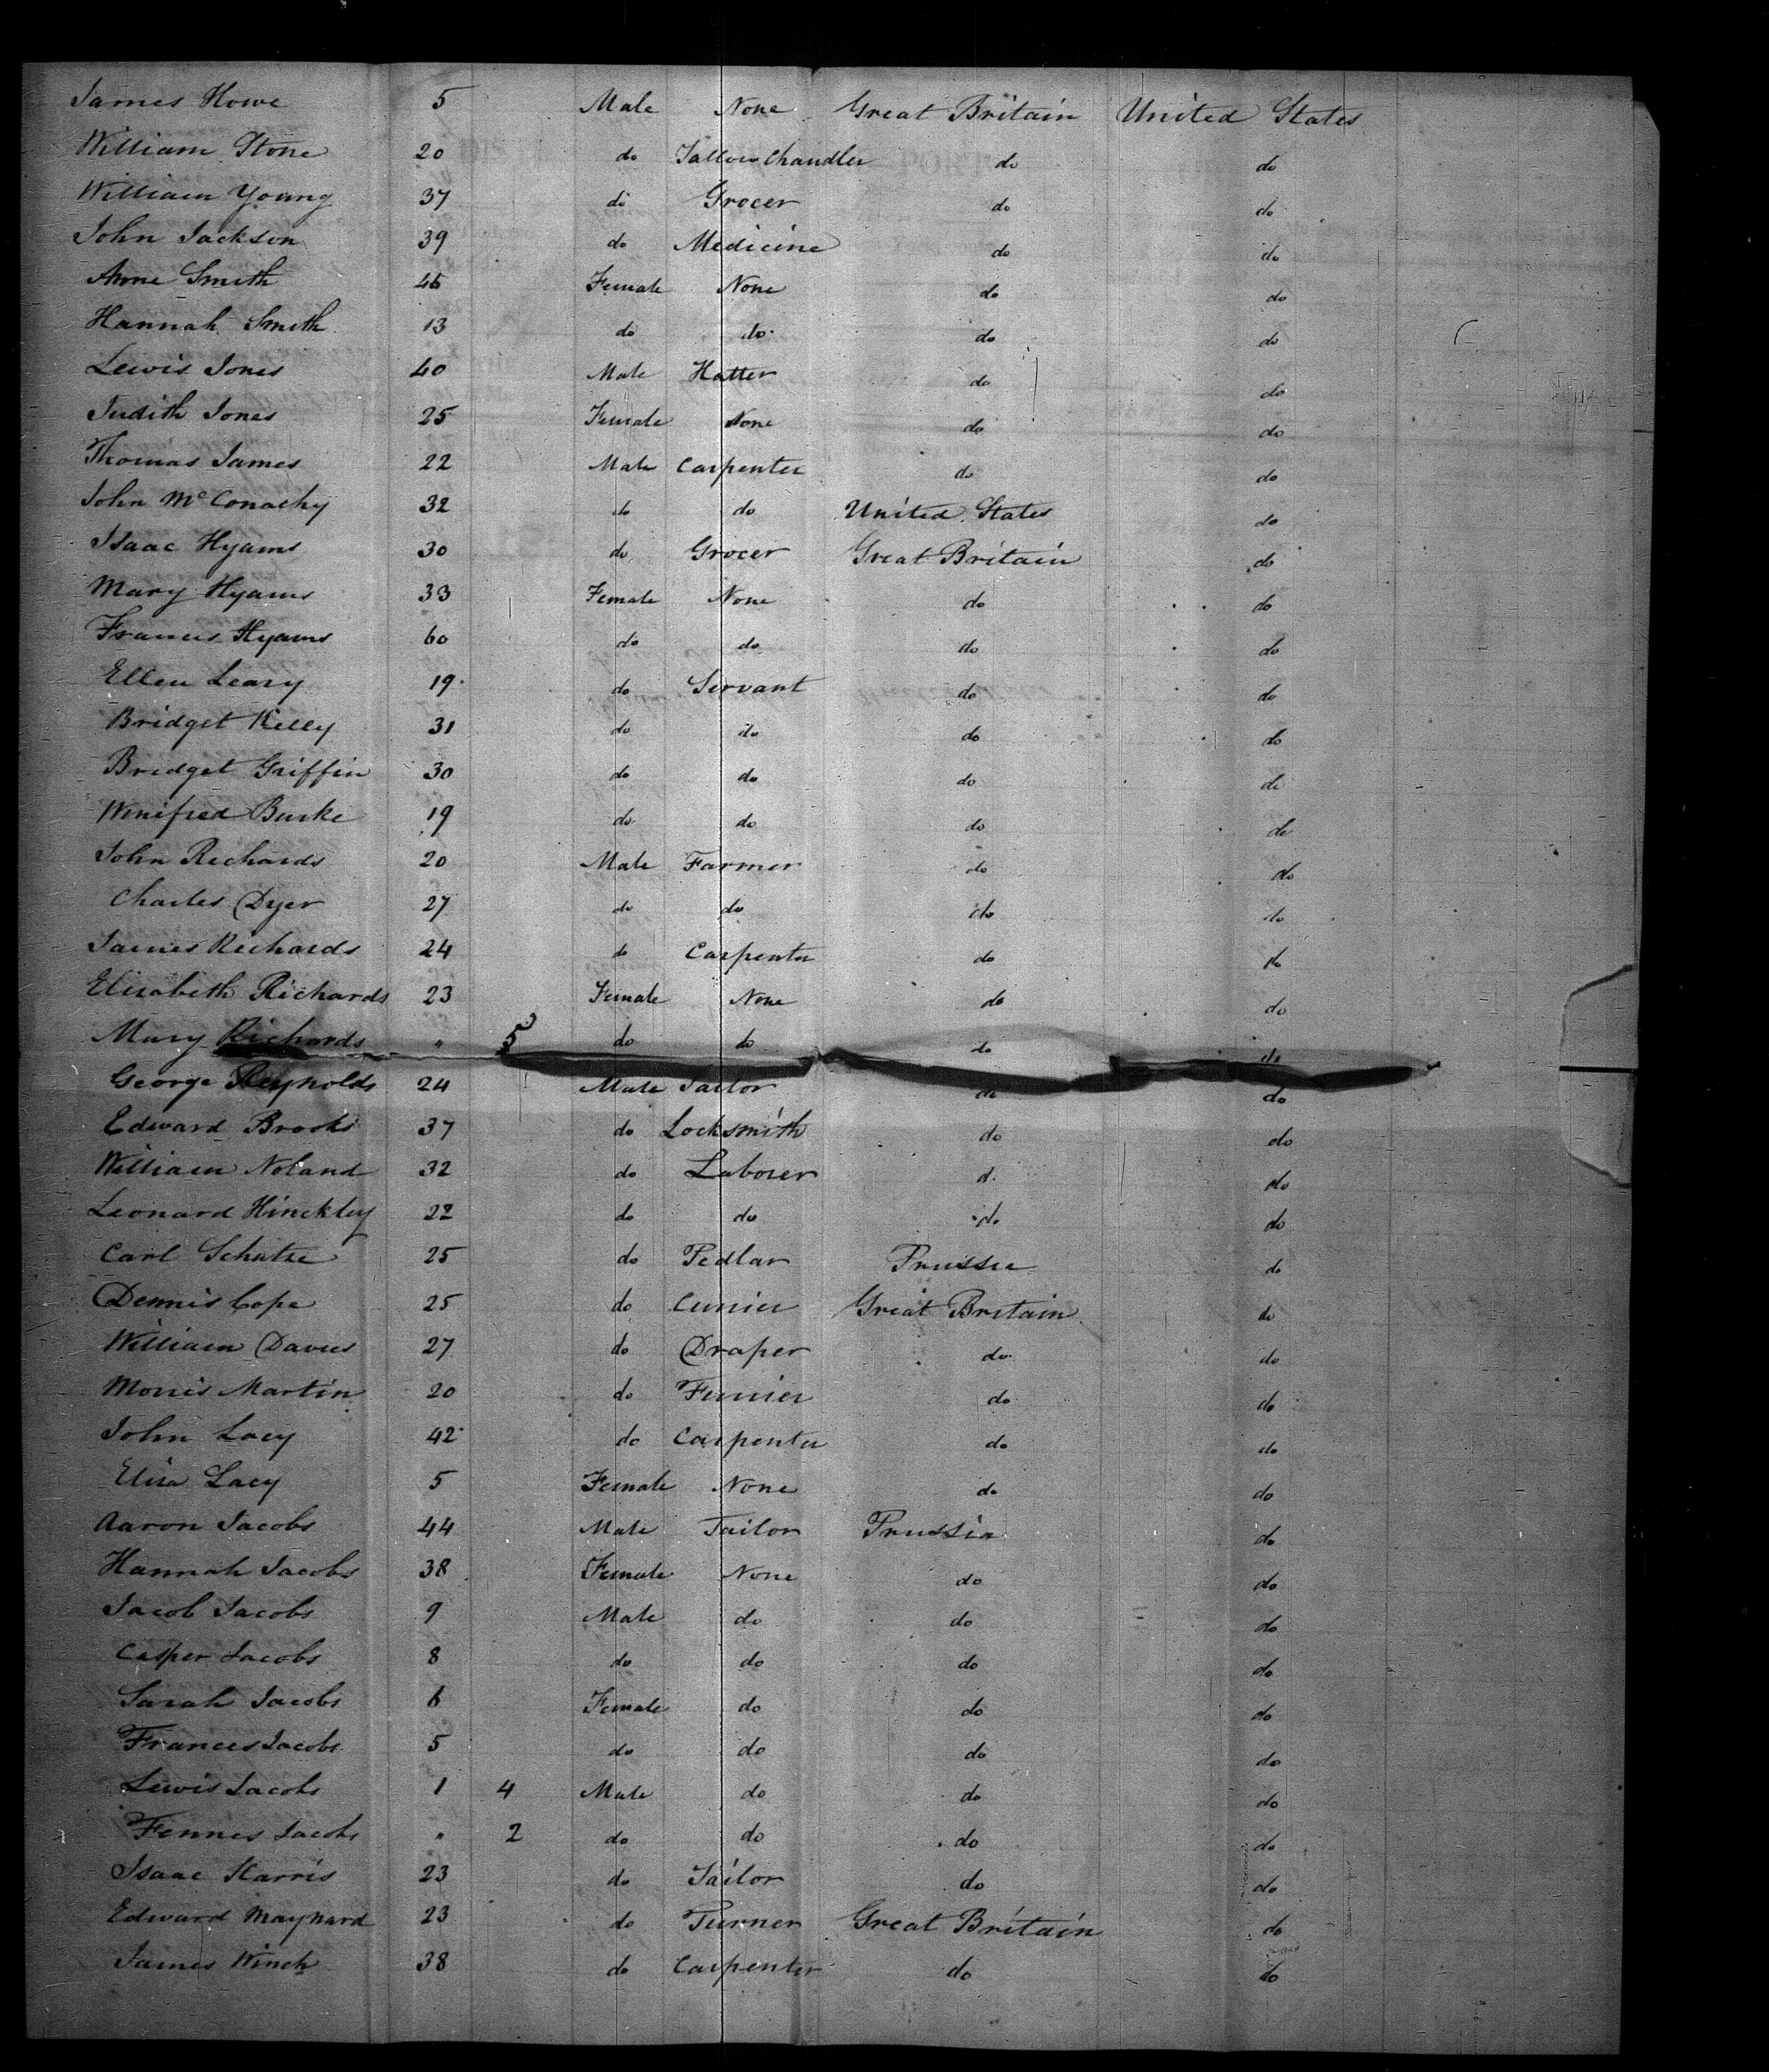 James Howe 5 Male None Great Britain United States
William Stone 20 do Tallow Chandler do do
William Young 37 do Grocer do do
John Jackson 39 do Medicine do do
Anne Smith 45 Female None do do
Hannah Smith 13 do do do do
Lewis Jones 40 Male Hatter do do
Judith Jones 25 Female None do do
Thomas James 22 Male Carpenter do do
John McConachy 32 do do United States do
Isaac Hyams 30 do Grocer Great Britain do
Mary Hyams 33 Female None do do
Frances Hyams 60 do do do do
Ellen Leary 19 do Servant do do
Bridget Kelly 31 do do do do
Bridget Griffin 30 do do do do
Winifred Burke 19 do do do do
John Richards 20 Male Farmer do do
Charles Dyer 27 do do do do
James Richards 24 do Carpenter do do
Elisabeth Richards 23 Female None do do
Mary Richards " 5 do do do do
George Reynolds 24 Male Tailor do do
Edward Brooks 37 do Locksmith do do
William Noland 32 do Laborer do do
Leonard Hinckley 22 do do do do
Carl Schutze 25 do Pedlar Prussia do
Dennis Cope 25 do Great Britain do
William Davies 27 do Draper do do
Morris Martin 20 do do do
John Lacy 42 do Carpenter do do
Eliza Lacy 5 Female None do do
Aaron Jacobs 44 Male Tailor Prussia do
Hannah Jacobs 38 Female None do do
Jacob Jacobs 9 Male do do do
Casper Jacobs 8 do do do do
Sarah Jacobs 6 Female do do do
Frances Jacobs 5 do do do do
Lewis Jacobs 1 4 Male do do do
Fennes Jacobs " 2 do do do do
Isaac Harris 23 do Tailor do do
Edward Maynard 23 do Turner Great Britain do
James Winch 38 do Carpenter do do